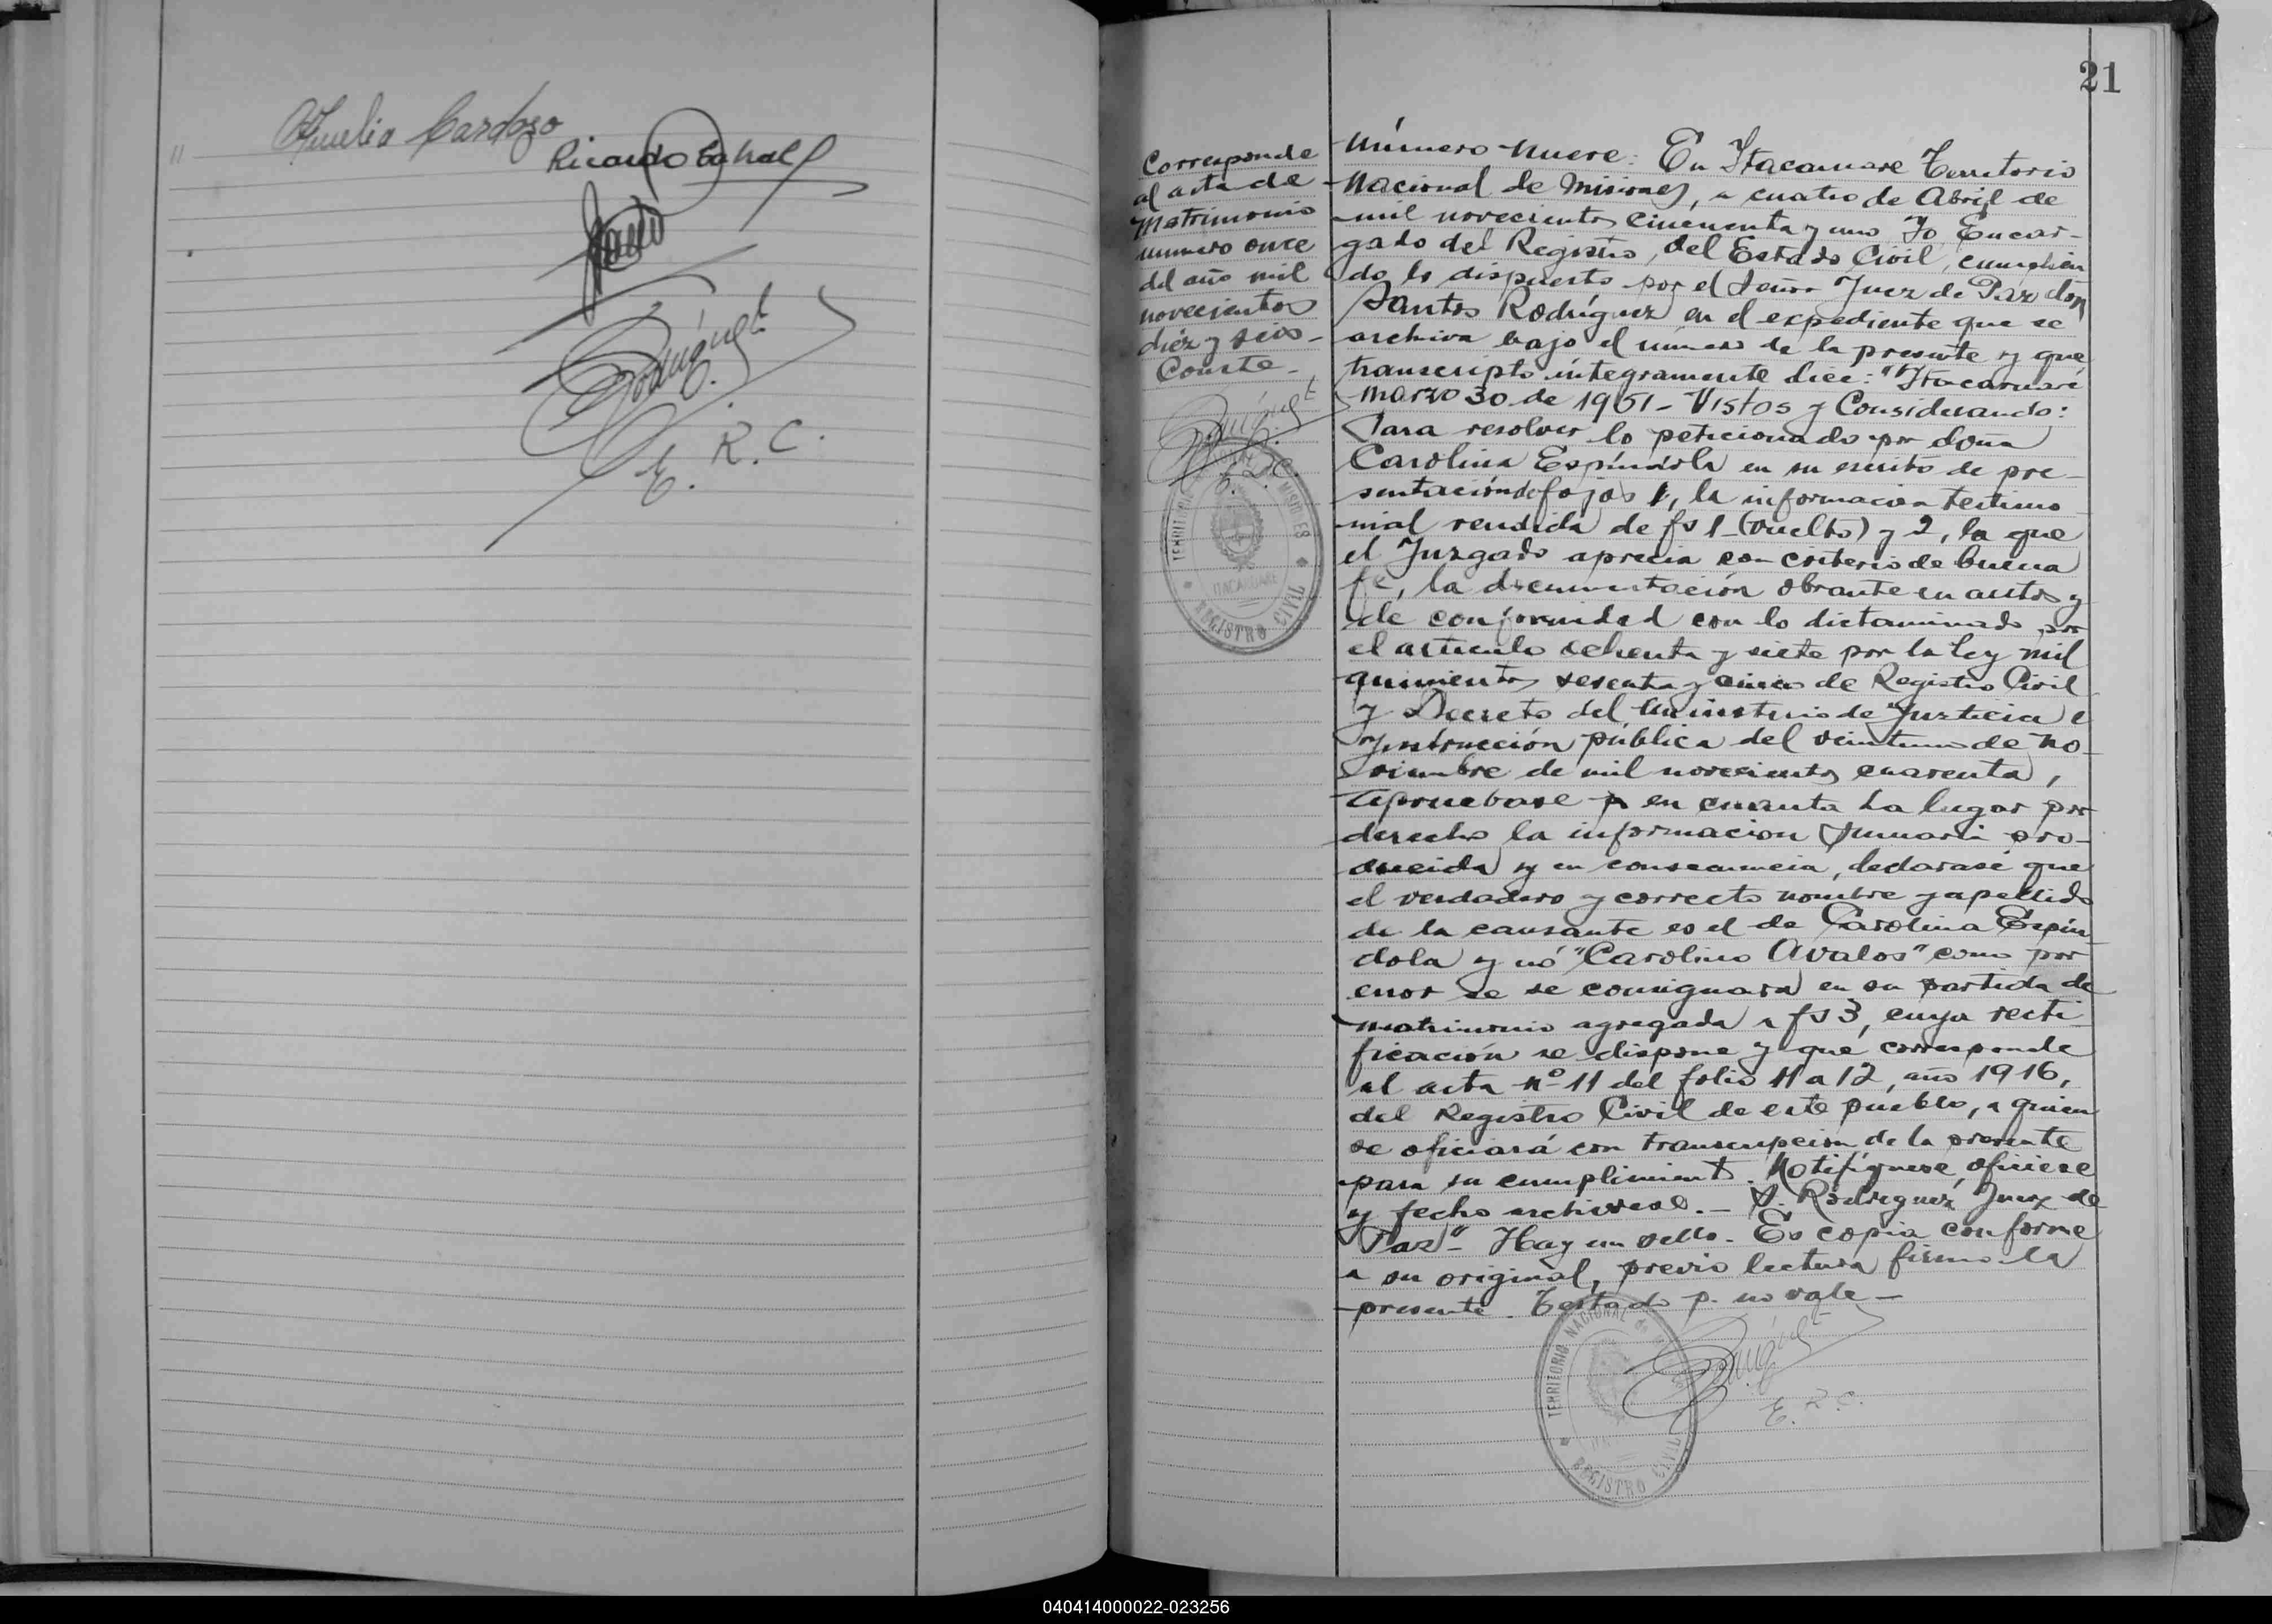 Aurelio Cardozo
Ricardo Cabral
Rodríguez
E. R. C.
21
Corresponde
al acta de
Matrimonio
numero once
del año mil
novecientos
diéz y seis -
Conste -
E. R. C.
TERRITORIO NACIONAL de MISIONES
ITACARUARE
REGISTRO CIVIL
Número nueve: En Itacaruare Territorio
Nacional de Misiones, a cuatro de Abril de
mil novecientos cincuenta y uno Yo, Encar-
gado del Registro, del Estado Civil, cumplien
do lo dispuesto por el Señor Juez de Paz don
Santos Rodríguez en el expediente que se
archiva bajo el número de la presente y que
transcripto íntegramente dice: "Itacaruaré
Marzo 30 de 1951 - Vistos y Considerando:
Para resolver lo peticionado por doña
Carolina Espíndola en su escrito de pre-
sentación de fojas 1, la informacion testimo
nial rendida de fs 1 (vuelto) y 2, la que
el Juzgado aprecia con criterio de buena
fé, la documentación obrante en autos y
de conformidad con lo dictaminado por
el artículo ochenta y siete por la Ley mil
quinientos sesenta y cinco de Registro Civil
y Decreto del Ministerio de Justicia e
Instrucción pública del veintiuno de No-
viembre de mil novecientos cuarenta,
Apruebase p en cuanto ha lugar por
derecho la informacion sumaria pro-
ducida y en consecuencia, declarase que
el verdadero y correcto nombre y apellido
de la causante es el de Carolina Espín
dola y nó "Carolina Avalos" como por
error se se consignara en su partida de
matrimonio agregada a fs 3, cuya recti
ficación se dispone y que corresponde
al acta nº 11 del folio 11 a 12, año 1916,
del Registro Civil de este pueblo, a quien
se oficiará con transcripción de la presente
para su cumplimiento. Notifíquese, oficiese
y fecho archivese. - S. Rodríguez Juez de
Paz" - Hay un sello - Es copia conforme
a su original, previo lectura firmo la
presente. Testado p. no vale -
TERRITORIO NACIONAL de
REGISTRO CIVIL
E. R. C.
040414000022-023256